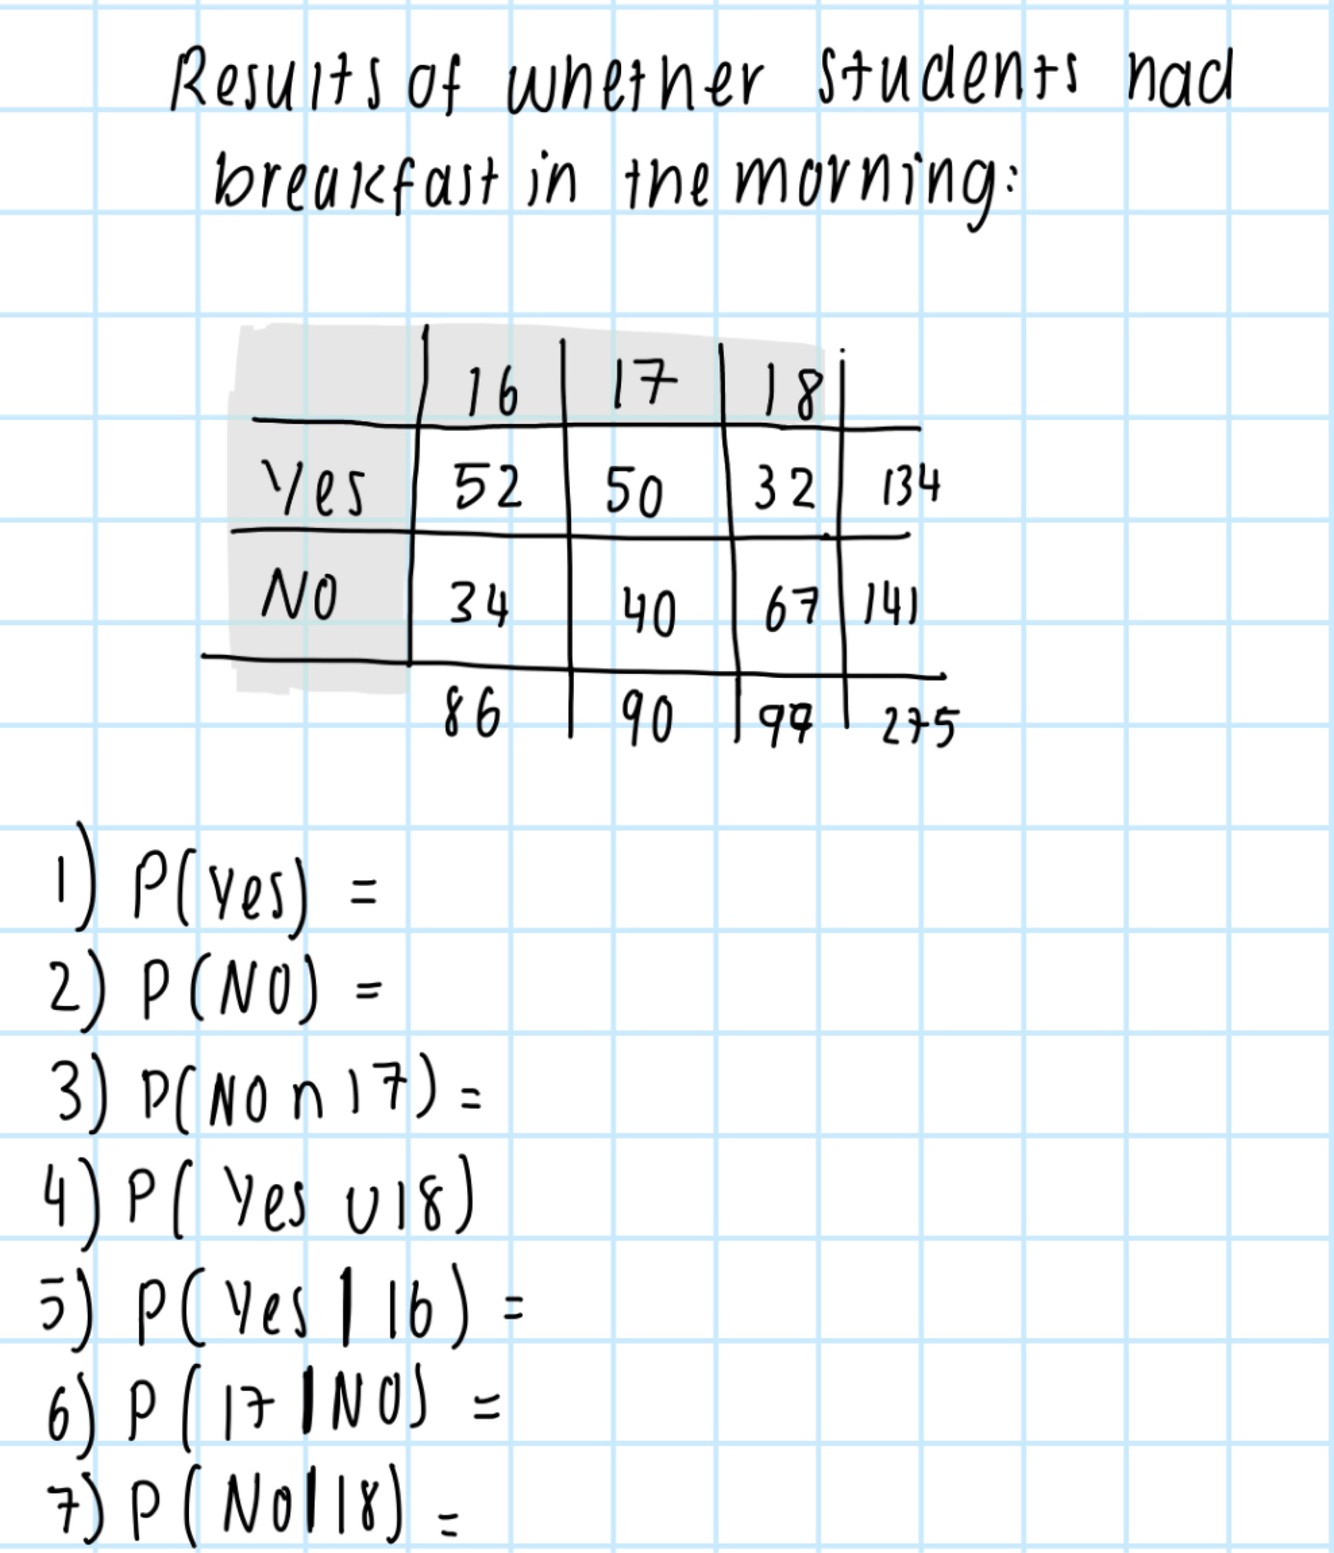 Results of whether students had
breakfast in the morning:
16 17 18
Yes 52 50 32 134
NO 34 40 67 141
86 90 99 275
1) P(Yes) =
2) P(NO) =
3) P(NO ∩ 17) =
4) P(Yes ∪ 18)
5) P(Yes | 16) =
6) P(17 | NO) =
7) P(NO | 18) =